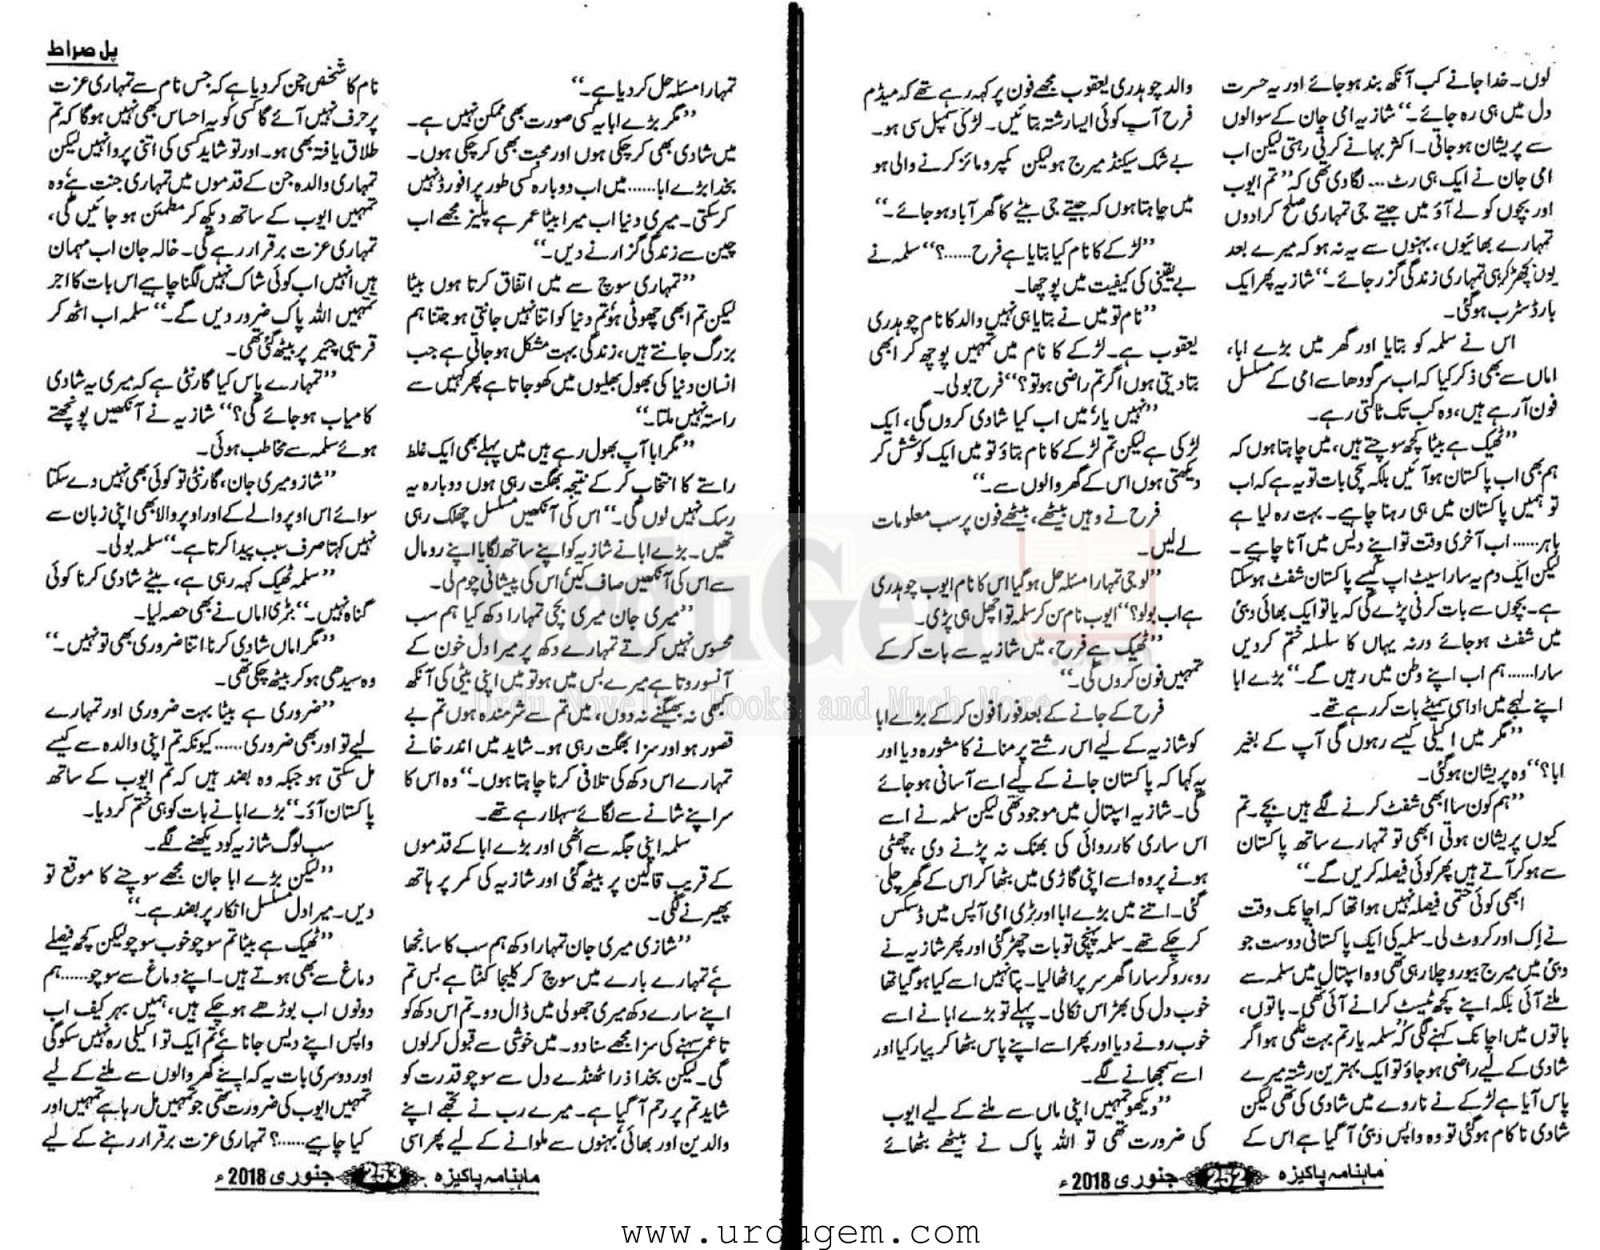 لوں۔ خدا جانے کب آنکھ بند ہو جائے اور یہ حسرت
دل میں ہی رہ جائے۔“ شازیہ امی جان کے سوالوں
سے پریشان ہو جاتی۔ اکثر بہانے کرتی رہتی لیکن اب
امی جان نے ایک ہی رٹ... لگا دی تھی کہ ”تم ایوب
اور بچوں کو لے آؤ میں جیتے جی تمہاری صلح کرا دوں
تمہارے بھائیوں، بہنوں سے یہ نہ ہو کہ میرے بعد
یوں بچھڑ کر ہی تمہاری زندگی گزر جائے۔“ شازیہ پھر ایک
بار ڈسٹرب ہو گئی۔
اس نے سلمہ کو بتایا اور گھر میں بڑے ابا،
اماں سے بھی ذکر کیا کہ اب سرگودھا سے امی کے مسلسل
فون آ رہے ہیں، وہ کب تک ٹالتی رہے۔
”ٹھیک ہے بیٹا کچھ سوچتے ہیں، میں چاہتا ہوں کہ
ہم بھی اب پاکستان ہو آئیں بلکہ سچی بات تو یہ ہے کہ اب
تو ہمیں پاکستان میں ہی رہنا چاہیے۔ بہت رہ لیا ہے
باہر...... اب آخری وقت تو اپنے دیس میں آنا چاہیے۔
لیکن ایک دم یہ سارا سیٹ اپ کیسے پاکستان شفٹ ہو سکتا
ہے۔ بچوں سے بات کرنی پڑے گی کہ یا تو ایک بھائی دبئی
میں شفٹ ہو جائے ورنہ یہاں کا سلسلہ ختم کر دیں
سارا...... ہم اب اپنے وطن میں رہیں گے۔“ بڑے ابا
اپنے لہجے میں اداسی سمیٹے بات کر رہے تھے۔
”مگر میں اکیلی کیسے رہوں گی آپ کے بغیر
ابا؟“ وہ پریشان ہو گئی۔
”ہم کون سا ابھی شفٹ کرنے لگے ہیں بچے۔ تم
کیوں پریشان ہوتی ابھی تو تمہارے ساتھ پاکستان
سے ہو کر آتے ہیں پھر کوئی فیصلہ کریں گے۔“
ابھی کوئی حتمی فیصلہ نہیں ہوا تھا کہ اچانک وقت
نے اک اور کروٹ لی۔ سلمہ کی ایک پاکستانی دوست جو
دبئی میں میرج بیورو چلا رہی تھی وہ اسپتال میں سلمہ سے
ملنے آئی بلکہ اپنے کچھ ٹیسٹ کرانے آئی تھی۔ باتوں،
باتوں میں اچانک کہنے لگی کہ سلمہ یار تم بہت نکمی ہو اگر
شادی کے لیے راضی ہو جاؤ تو ایک بہترین رشتہ میرے
پاس آیا ہے لڑکے نے ناروے میں شادی کی تھی لیکن
شادی ناکام ہو گئی تو وہ واپس دبئی آ گیا ہے اس کے
والد چوہدری یعقوب مجھے فون پر کہہ رہے تھے کہ میڈم
فرح آپ کوئی ایسا رشتہ بتائیں۔ لڑکی سمپل سی ہو۔
بے شک سیکنڈ میرج ہو لیکن کمپرومائز کرنے والی ہو
میں چاہتا ہوں کہ جیتے جی بیٹے کا گھر آباد ہو جائے۔“
”لڑکے کا نام کیا بتایا ہے فرح......؟“ سلمہ نے
بے یقینی کی کیفیت میں پوچھا۔
”نام تو میں نے بتایا ہی نہیں والد کا نام چوہدری
یعقوب ہے۔ لڑکے کا نام میں تمہیں پوچھ کر ابھی
بتا دیتی ہوں اگر تم راضی ہو تو؟“ فرح بولی۔
”نہیں یار میں اب کیا شادی کروں گی، ایک
لڑکی ہے لیکن تم لڑکے کا نام بتاؤ تو میں ایک کوشش کر
دیکھتی ہوں اس کے گھر والوں سے۔“
فرح نے وہیں بیٹھے، بیٹھے فون پر سب معلومات
لے لیں۔
”لو جی تمہارا مسئلہ حل ہو گیا اس کا نام ایوب چوہدری
ہے اب بولو؟“ ایوب نام سن کر سلمہ تو اچھل ہی پڑی۔
”ٹھیک ہے فرح، میں شازیہ سے بات کر کے
تمہیں فون کروں گی۔“
فرح کے جانے کے بعد فوراً فون کر کے بڑے ابا
کو شازیہ کے لیے اس رشتے پر منانے کا مشورہ دیا اور
یہ کہا کہ پاکستان جانے کے لیے اسے آسانی ہو جائے
گی۔ شازیہ اسپتال میں موجود تھی لیکن سلمہ نے اسے
اس ساری کارروائی کی بھنک نہ پڑنے دی، چھٹی
ہونے پر وہ اسے اپنی گاڑی میں بٹھا کر اس کے گھر چلی
گئی۔ اتنے میں بڑے ابا اور بڑی امی آپس میں ڈسکس
کر چکے تھے۔ سلمہ پہنچی تو بات چھڑ گئی اور پھر شازیہ نے
رو، رو کر سارا گھر سر پر اٹھا لیا۔ پتا نہیں اسے کیا ہو گیا تھا
خوب دل کی بھڑاس نکالی۔ پہلے تو بڑے ابا نے اسے
خوب رونے دیا اور پھر اسے اپنے پاس بٹھا کر پیار کیا اور
اسے سمجھانے لگے۔
”دیکھو تمہیں اپنی ماں سے ملنے کے لیے ایوب
کی ضرورت تھی تو اللہ پاک نے بیٹھے بٹھائے
ماہنامہ پاکیزہ 252 جنوری 2018ء
پل صراط
تمہارا مسئلہ حل کر دیا ہے۔“
”مگر بڑے ابا یہ کسی صورت بھی ممکن نہیں ہے۔
میں شادی بھی کر چکی ہوں اور محبت بھی کر چکی ہوں۔
بخدا بڑے ابا...... میں اب دوبارہ کسی طور پر افورڈ نہیں
کر سکتی۔ میری دنیا اب میرا بیٹا عمر ہے پلیز مجھے اب
چین سے زندگی گزارنے دیں۔“
”تمہاری سوچ سے میں اتفاق کرتا ہوں بیٹا
لیکن تم ابھی چھوٹی ہو تم دنیا کو اتنا نہیں جانتی ہو جتنا ہم
بزرگ جانتے ہیں، زندگی بہت مشکل ہو جاتی ہے جب
انسان دنیا کی بھول بھلیوں میں کھو جاتا ہے پھر کہیں سے
راستہ نہیں ملتا۔“
”مگر ابا آپ بھول رہے ہیں میں پہلے بھی ایک غلط
راستے کا انتخاب کر کے نتیجہ بھگت رہی ہوں دوبارہ یہ
رسک نہیں لوں گی۔“ اس کی آنکھیں مسلسل چھلک رہی
تھیں۔ بڑے ابا نے شازیہ کو اپنے ساتھ لگایا اپنے رومال
سے اس کی آنکھیں صاف کیں، اس کی پیشانی چوم لی۔
”میری جان میری بچی تمہارا دکھ کیا ہم سب
محسوس نہیں کرتے تمہارے دکھ پر میرا دل خون کے
آنسو روتا ہے میرے بس میں ہو تو میں اپنی بیٹی کی آنکھ
کبھی نہ بھیگنے نہ دوں، میں تم سے شرمندہ ہوں تم بے
قصور ہو اور سزا بھگت رہی ہو۔ شاید میں اندر خانے
تمہارے اس دکھ کی تلافی کرنا چاہتا ہوں۔“ وہ اس کا
سر اپنے شانے سے لگائے سہلا رہے تھے۔
سلمہ اپنی جگہ سے اٹھی اور بڑے ابا کے قدموں
کے قریب قالین پر بیٹھ گئی اور شازیہ کی کمر پر ہاتھ
پھیرنے لگی۔
”شازی میری جان تمہارا دکھ ہم سب کا سانجھا
ہے، تمہارے بارے میں سوچ کر کلیجا کٹتا ہے بس تم
اپنے سارے دکھ میری جھولی میں ڈال دو۔ تم اس دکھ کو
تا عمر سہنے کی سزا مجھے سنا دو۔ میں خوشی سے قبول کر لوں
گی۔ لیکن بخدا ذرا ٹھنڈے دل سے سوچو قدرت کو
شاید تم پر رحم آ گیا ہے۔ میرے رب نے تجھے اپنے
والدین اور بھائی بہنوں سے ملوانے کے لیے پھر اسی
نام کا شخص چن کر دیا ہے کہ جس نام سے تمہاری عزت
پر حرف نہیں آئے گا کسی کو یہ احساس بھی نہیں ہو گا کہ تم
طلاق یافتہ بھی ہو۔ اور تو شاید کسی کی اتنی پروا نہیں لیکن
تمہاری والدہ جن کے قدموں میں تمہاری جنت ہے، وہ
تمہیں ایوب کے ساتھ دیکھ کر مطمئن ہو جائیں گی،
تمہاری عزت برقرار رہے گی۔ خالہ جان اب مہمان
ہیں انہیں اب کوئی شاک نہیں لگنا چاہیے اس بات کا اجر
تمہیں اللہ پاک ضرور دیں گے۔“ سلمہ اب اٹھ کر
قریبی چیئر پر بیٹھ گئی تھی۔
”تمہارے پاس کیا گارنٹی ہے کہ میری یہ شادی
کامیاب ہو جائے گی؟“ شازیہ نے آنکھیں پونچھتے
ہوئے سلمہ سے مخاطب ہوئی۔
”شازو میری جان، گارنٹی تو کوئی بھی نہیں دے سکتا
سوائے اس اوپر والے کے اور اوپر والا بھی اپنی زبان سے
نہیں کہتا صرف سبب پیدا کرتا ہے۔“ سلمہ بولی۔
”سلمہ ٹھیک کہہ رہی ہے، بیٹے شادی کرنا کوئی
گناہ نہیں۔“ بڑی اماں نے بھی حصہ لیا۔
”مگر اماں شادی کرنا اتنا ضروری بھی تو نہیں۔“
وہ سیدھی ہو کر بیٹھ چکی تھی۔
”ضروری ہے بیٹا بہت ضروری اور تمہارے
لیے تو اور بھی ضروری...... کیونکہ تم اپنی والدہ سے کیسے
مل سکتی ہو جبکہ وہ بضد ہیں کہ تم ایوب کے ساتھ
پاکستان آؤ۔“ بڑے ابا نے بات کو ہی ختم کر دیا۔
سب لوگ شازیہ کو دیکھنے لگے۔
”لیکن بڑے ابا جان مجھے سوچنے کا موقع تو
دیں۔ میرا دل مسلسل انکار پر بضد ہے۔“
”ٹھیک ہے بیٹا تم سوچو خوب سوچو لیکن کچھ فیصلے
دماغ سے بھی ہوتے ہیں۔ اپنے دماغ سے سوچو...... ہم
دونوں اب بوڑھے ہو چکے ہیں، ہمیں بہر کیف اب
واپس اپنے دیس جانا ہے، تم ایک تو اکیلی رہ نہیں سکو گی
اور دوسری بات یہ کہ اپنے گھر والوں سے ملنے کے لیے
تمہیں ایوب کی ضرورت تھی جو تمہیں مل رہا ہے تمہیں اور
کیا چاہیے.....؟ تمہاری عزت برقرار رہنے کے لیے
ماہنامہ پاکیزہ 253 جنوری 2018ء
UrduGem
Urdu Novels, Books, and Much More
www.urdugem.com